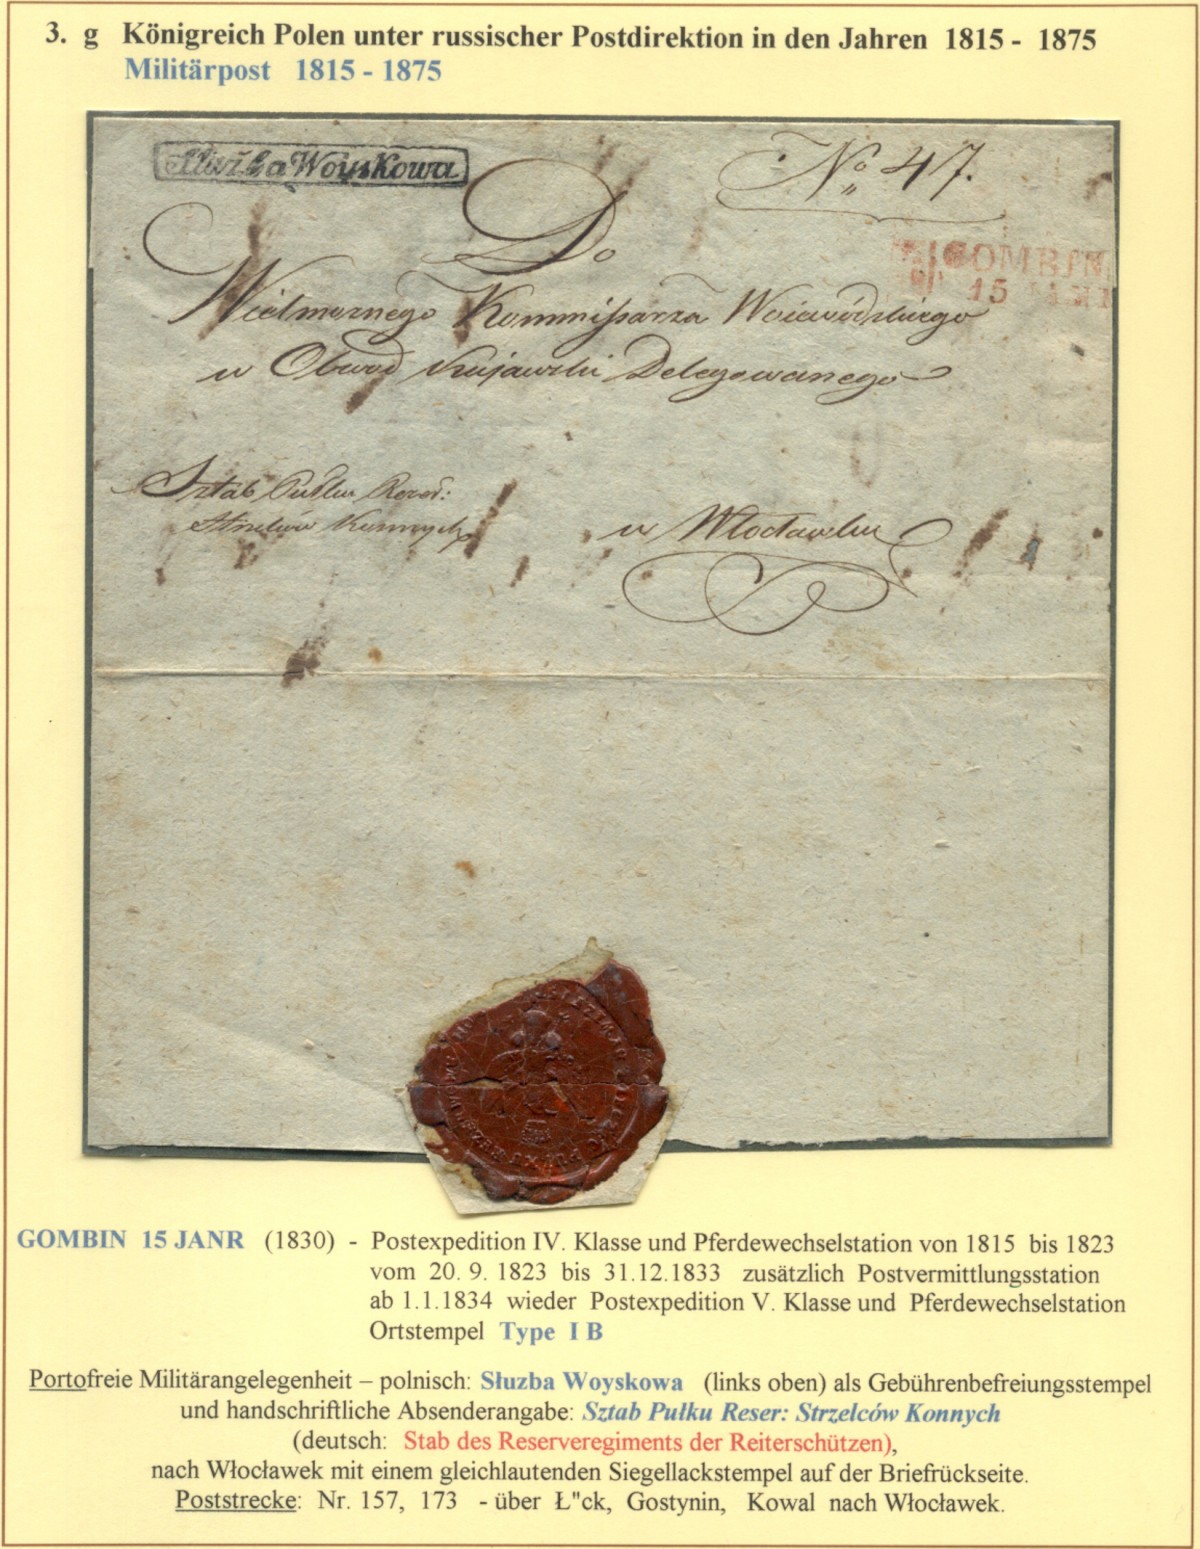 3. g Königreich Polen unter russischer Postdirektion in den Jahren 1815 - 1875
Militärpost 1815 - 1875
Służba Woyskowa
No 47.
Do
GOMBIN
15 JANR
Wielmożnego Kommissarza Woiewódzkiego
w Obwód Kujawski Delegowanego
Sztab Pułku Rezer:
Strzelców Konnych
w Włocławku
GOMBIN 15 JANR (1830) - Postexpedition IV. Klasse und Pferdewechselstation von 1815 bis 1823
vom 20. 9. 1823 bis 31.12.1833 zusätzlich Postvermittlungsstation
ab 1.1.1834 wieder Postexpedition V. Klasse und Pferdewechselstation
Ortstempel Type I B
Portofreie Militärangelegenheit – polnisch: Słuzba Woyskowa (links oben) als Gebührenbefreiungsstempel
und handschriftliche Absenderangabe: Sztab Pułku Reser: Strzelców Konnych
(deutsch: Stab des Reserveregiments der Reiterschützen),
nach Włocławek mit einem gleichlautenden Siegellackstempel auf der Briefrückseite.
Poststrecke: Nr. 157, 173 - über Ł"ck, Gostynin, Kowal nach Włocławek.